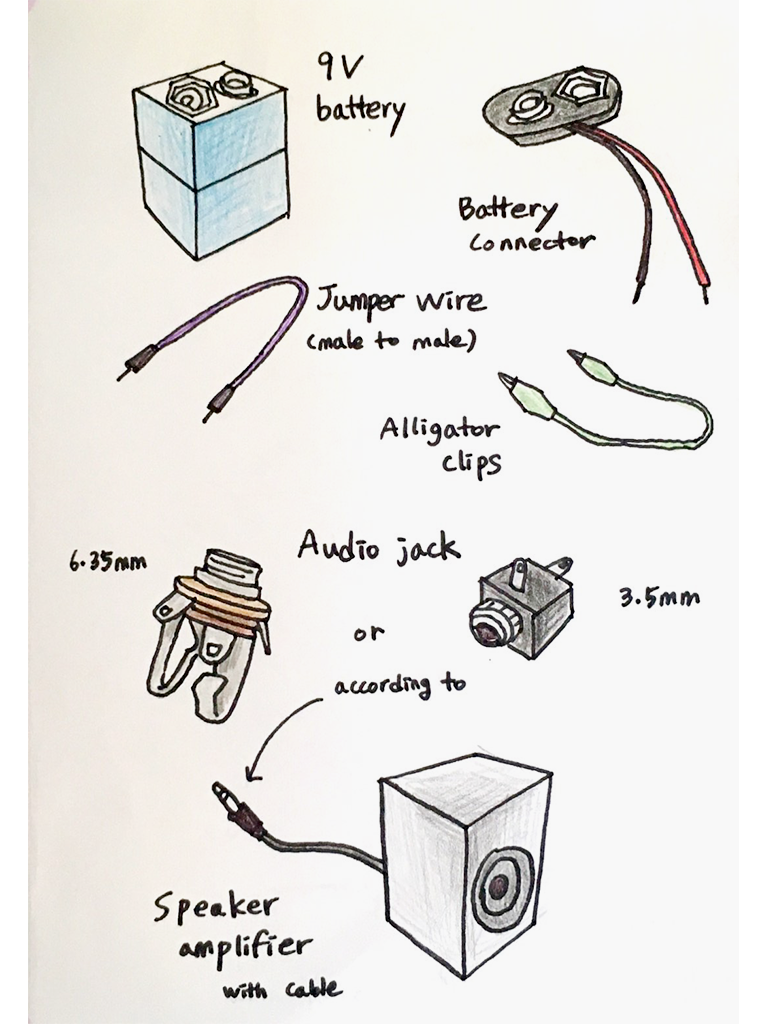 9V
battery
Battery
Connector
Jumper wire
(male to male)
Alligator
clips
6.35mm
Audio jack
3.5mm
or
according to
Speaker
amplifier
with cable